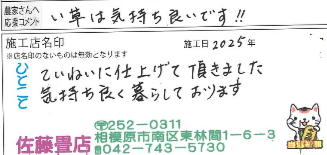 農家さんへ
応援コメント
い草は気持ち良いです!!
施工店名印
※店名印のないものは無効となります
施工日 2025年
ていねいに仕上げて頂きました
気持ち良く暮らしております
佐藤畳店
252-0311
相模原市南区東林間1-6-3
☎042-743-5730